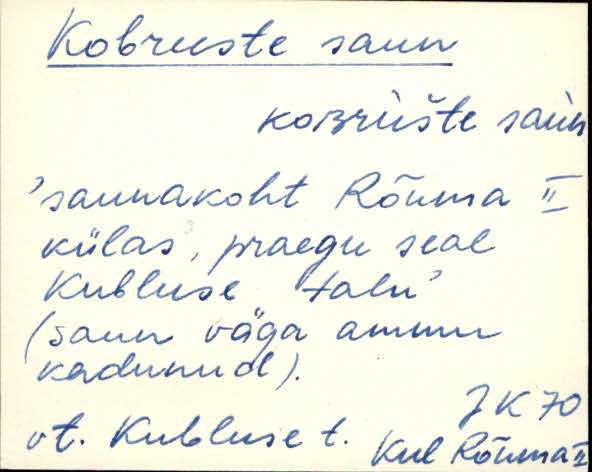 Kobruste saun
koʙrùšte saùn
'saunakoht Rõuma II
külas, praegu seal
Kubluse talu'
(saun väga ammu
kadunud).
JK 70
vt. Kubluse t.
Kul Rõuma II